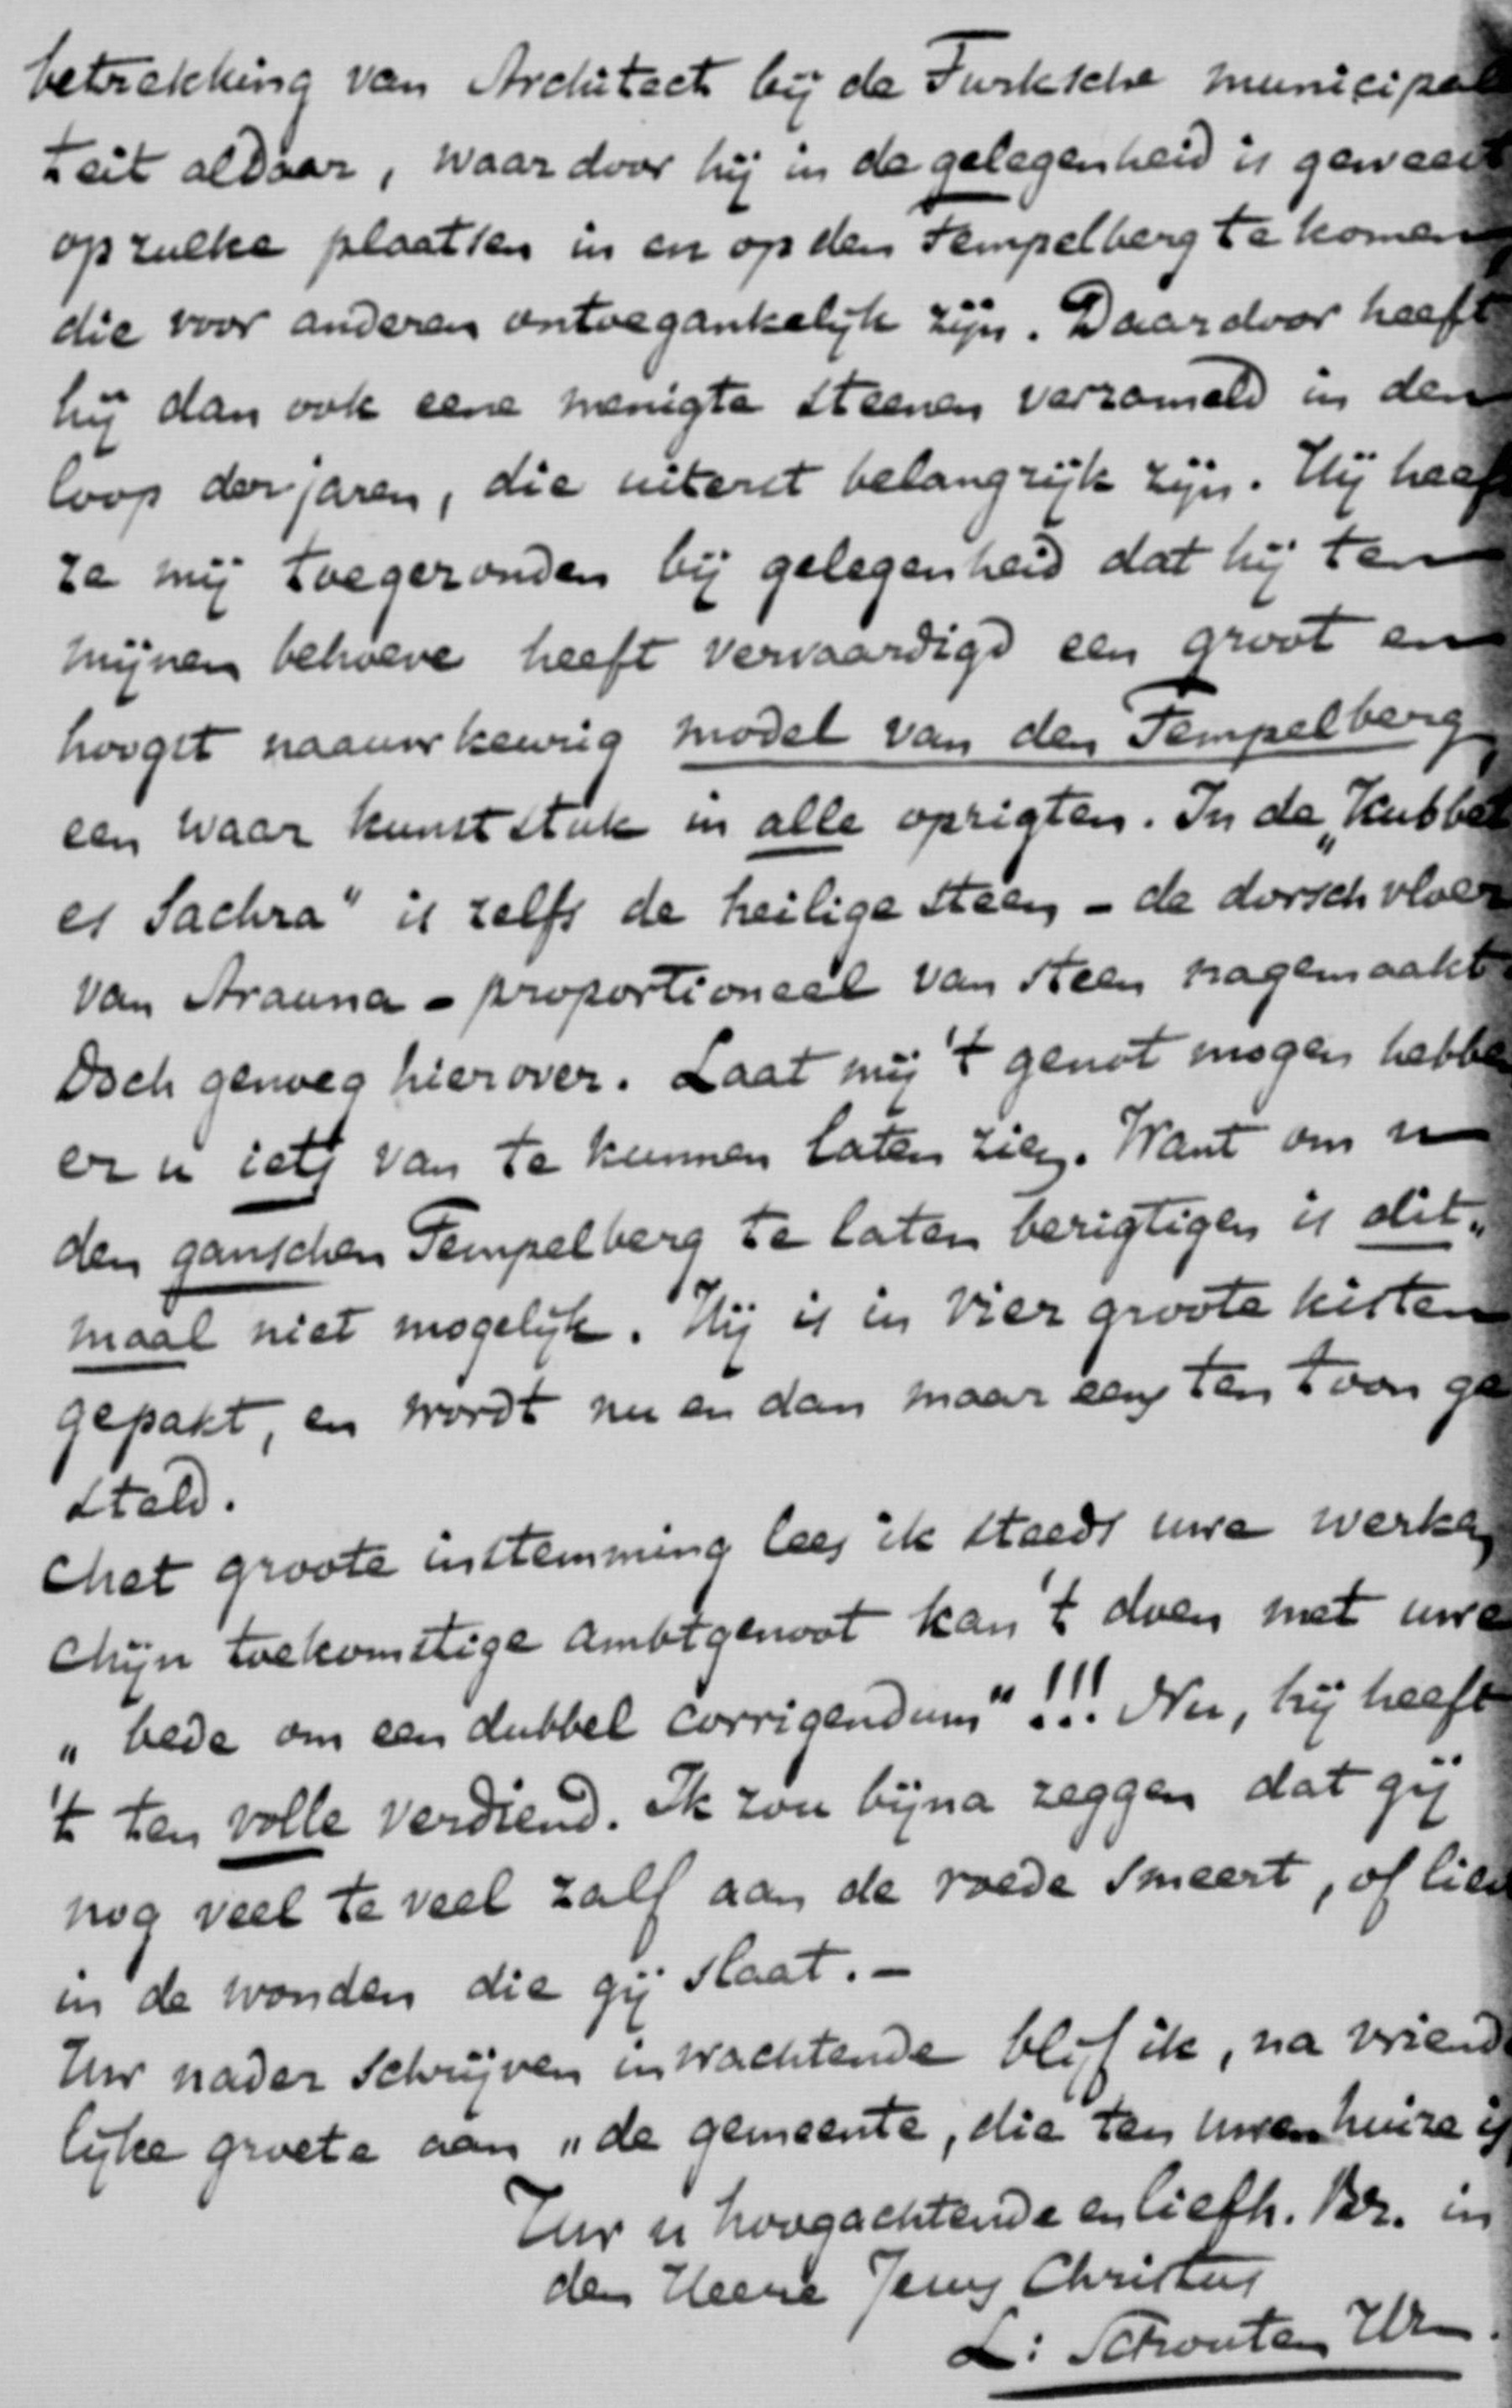 betrekking van Architect bij de Turksche municipali
teit aldaar, waardoor hij in de gelegenheid is geweest
op zulke plaatsen in en op den Tempelberg te komen
die voor anderen ontoegankelijk zijn. Daardoor heeft
hij dan ook eene menigte steenen verzameld in den
loop der jaren, die uiterst belangrijk zijn. Hij heeft
ze mij toegezonden bij gelegenheid dat hij ten
mijnen behoeve heeft vervaardigd een groot en
hoogst naauwkeurig model van den Tempelberg,
een waar kunststuk in alle opzigten. In de „Kubbet
es Sachra" is zelfs de heilige steen - de dorschvloer
van Arauna - proportioneel van steen nagemaakt
Doch genoeg hierover. Laat mij 't genot mogen hebben
er u iets van te kunnen laten zien. Want om u
den ganschen Tempelberg te laten berigtigen is dit„
maal niet mogelijk. Hij is in vier groote kisten
gepakt, en wordt nu en dan maar eens ten toon ge
steld.
Met groote instemming lees ik steeds uwe werken
Mijn toekomstige ambtgenoot kan 't doen met uwe
„bede om een dubbel corrigendum"!!! Nu, hij heeft
't ten volle verdiend. Ik zou bijna zeggen dat gij
nog veel te veel zalf aan de roede smeert, of liever
in de wonden die gij slaat. -
Uw nader schrijven inwachtende blijf ik, na vriende
lijke groete aan „de gemeente, die ten uwen huize is
Uw u hoogachtende en liefh. Br. in
den Heere Jezus Christus
L: Schouten Hzn.